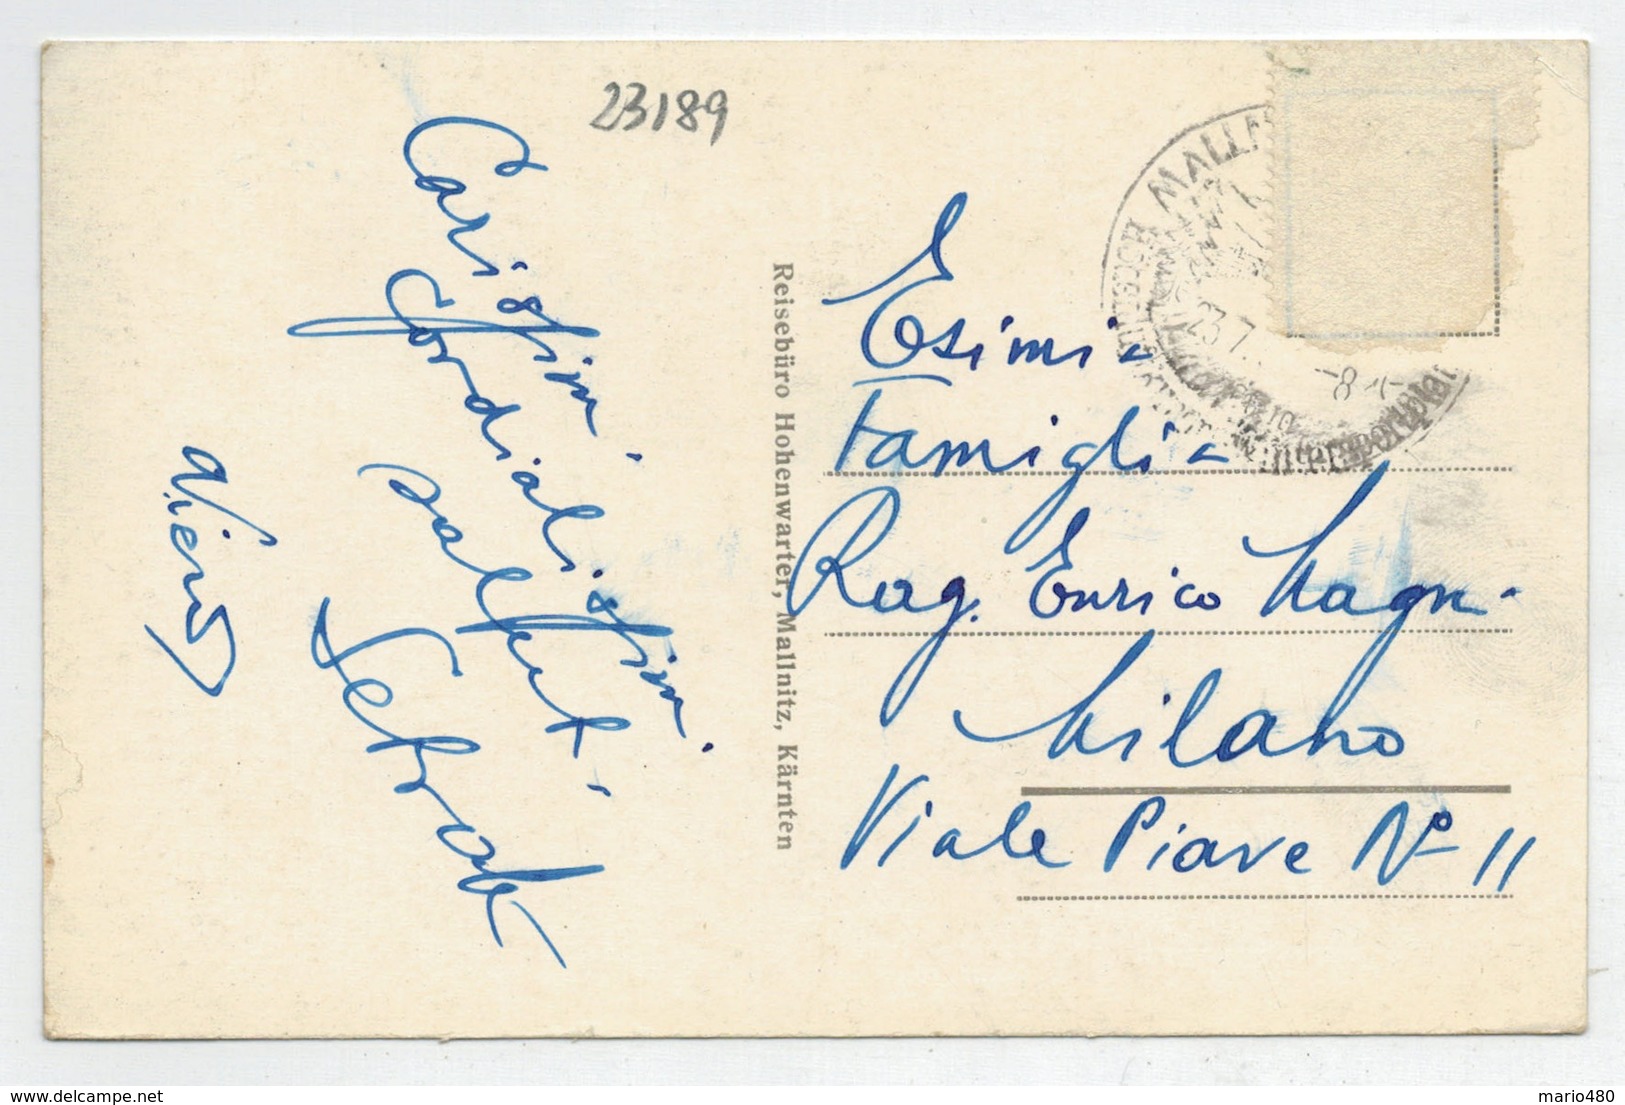 23189
Carissimi
Cordialissimi
saluti
Reisebüro Hohenwarter, Mallnitz, Kärnten
MALLN
23.7.
-8
Esimia
Famiglia
Rag. Enrico Magni
Milano
Viale Piave Nº 11
delcampe.net
mario480